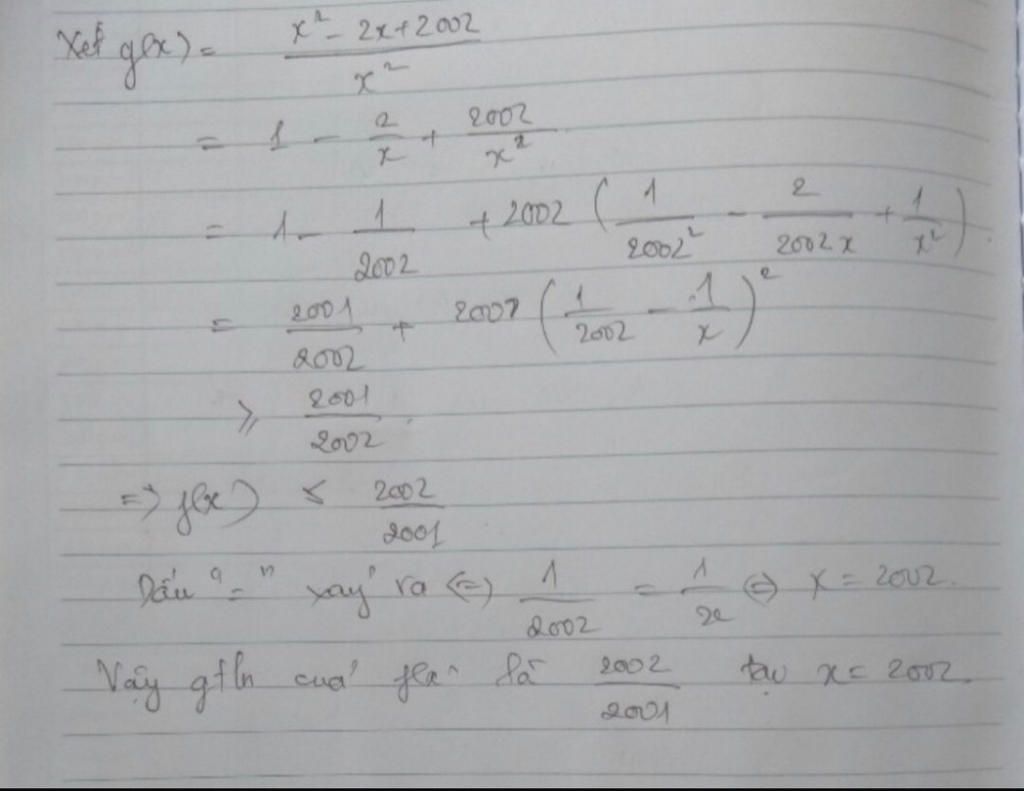 Xét g(x) = \frac{x² - 2x + 2002}{x²}
= 1 - \frac{2}{x} + \frac{2002}{x²}
= 1 - \frac{1}{2002} + 2002 ( \frac{1}{2002²} - \frac{2}{2002x} + \frac{1}{x²} ).
= \frac{2001}{2002} + 2002 ( \frac{1}{2002} - \frac{1}{x} )²
⩾ \frac{2001}{2002}.
=> f(x) ≤ \frac{2002}{2001}
Dấu "=" xảy ra <=> \frac{1}{2002} = \frac{1}{x} <=> x = 2002.
Vậy gtln của f(x) là \frac{2002}{2001} tại x = 2002.